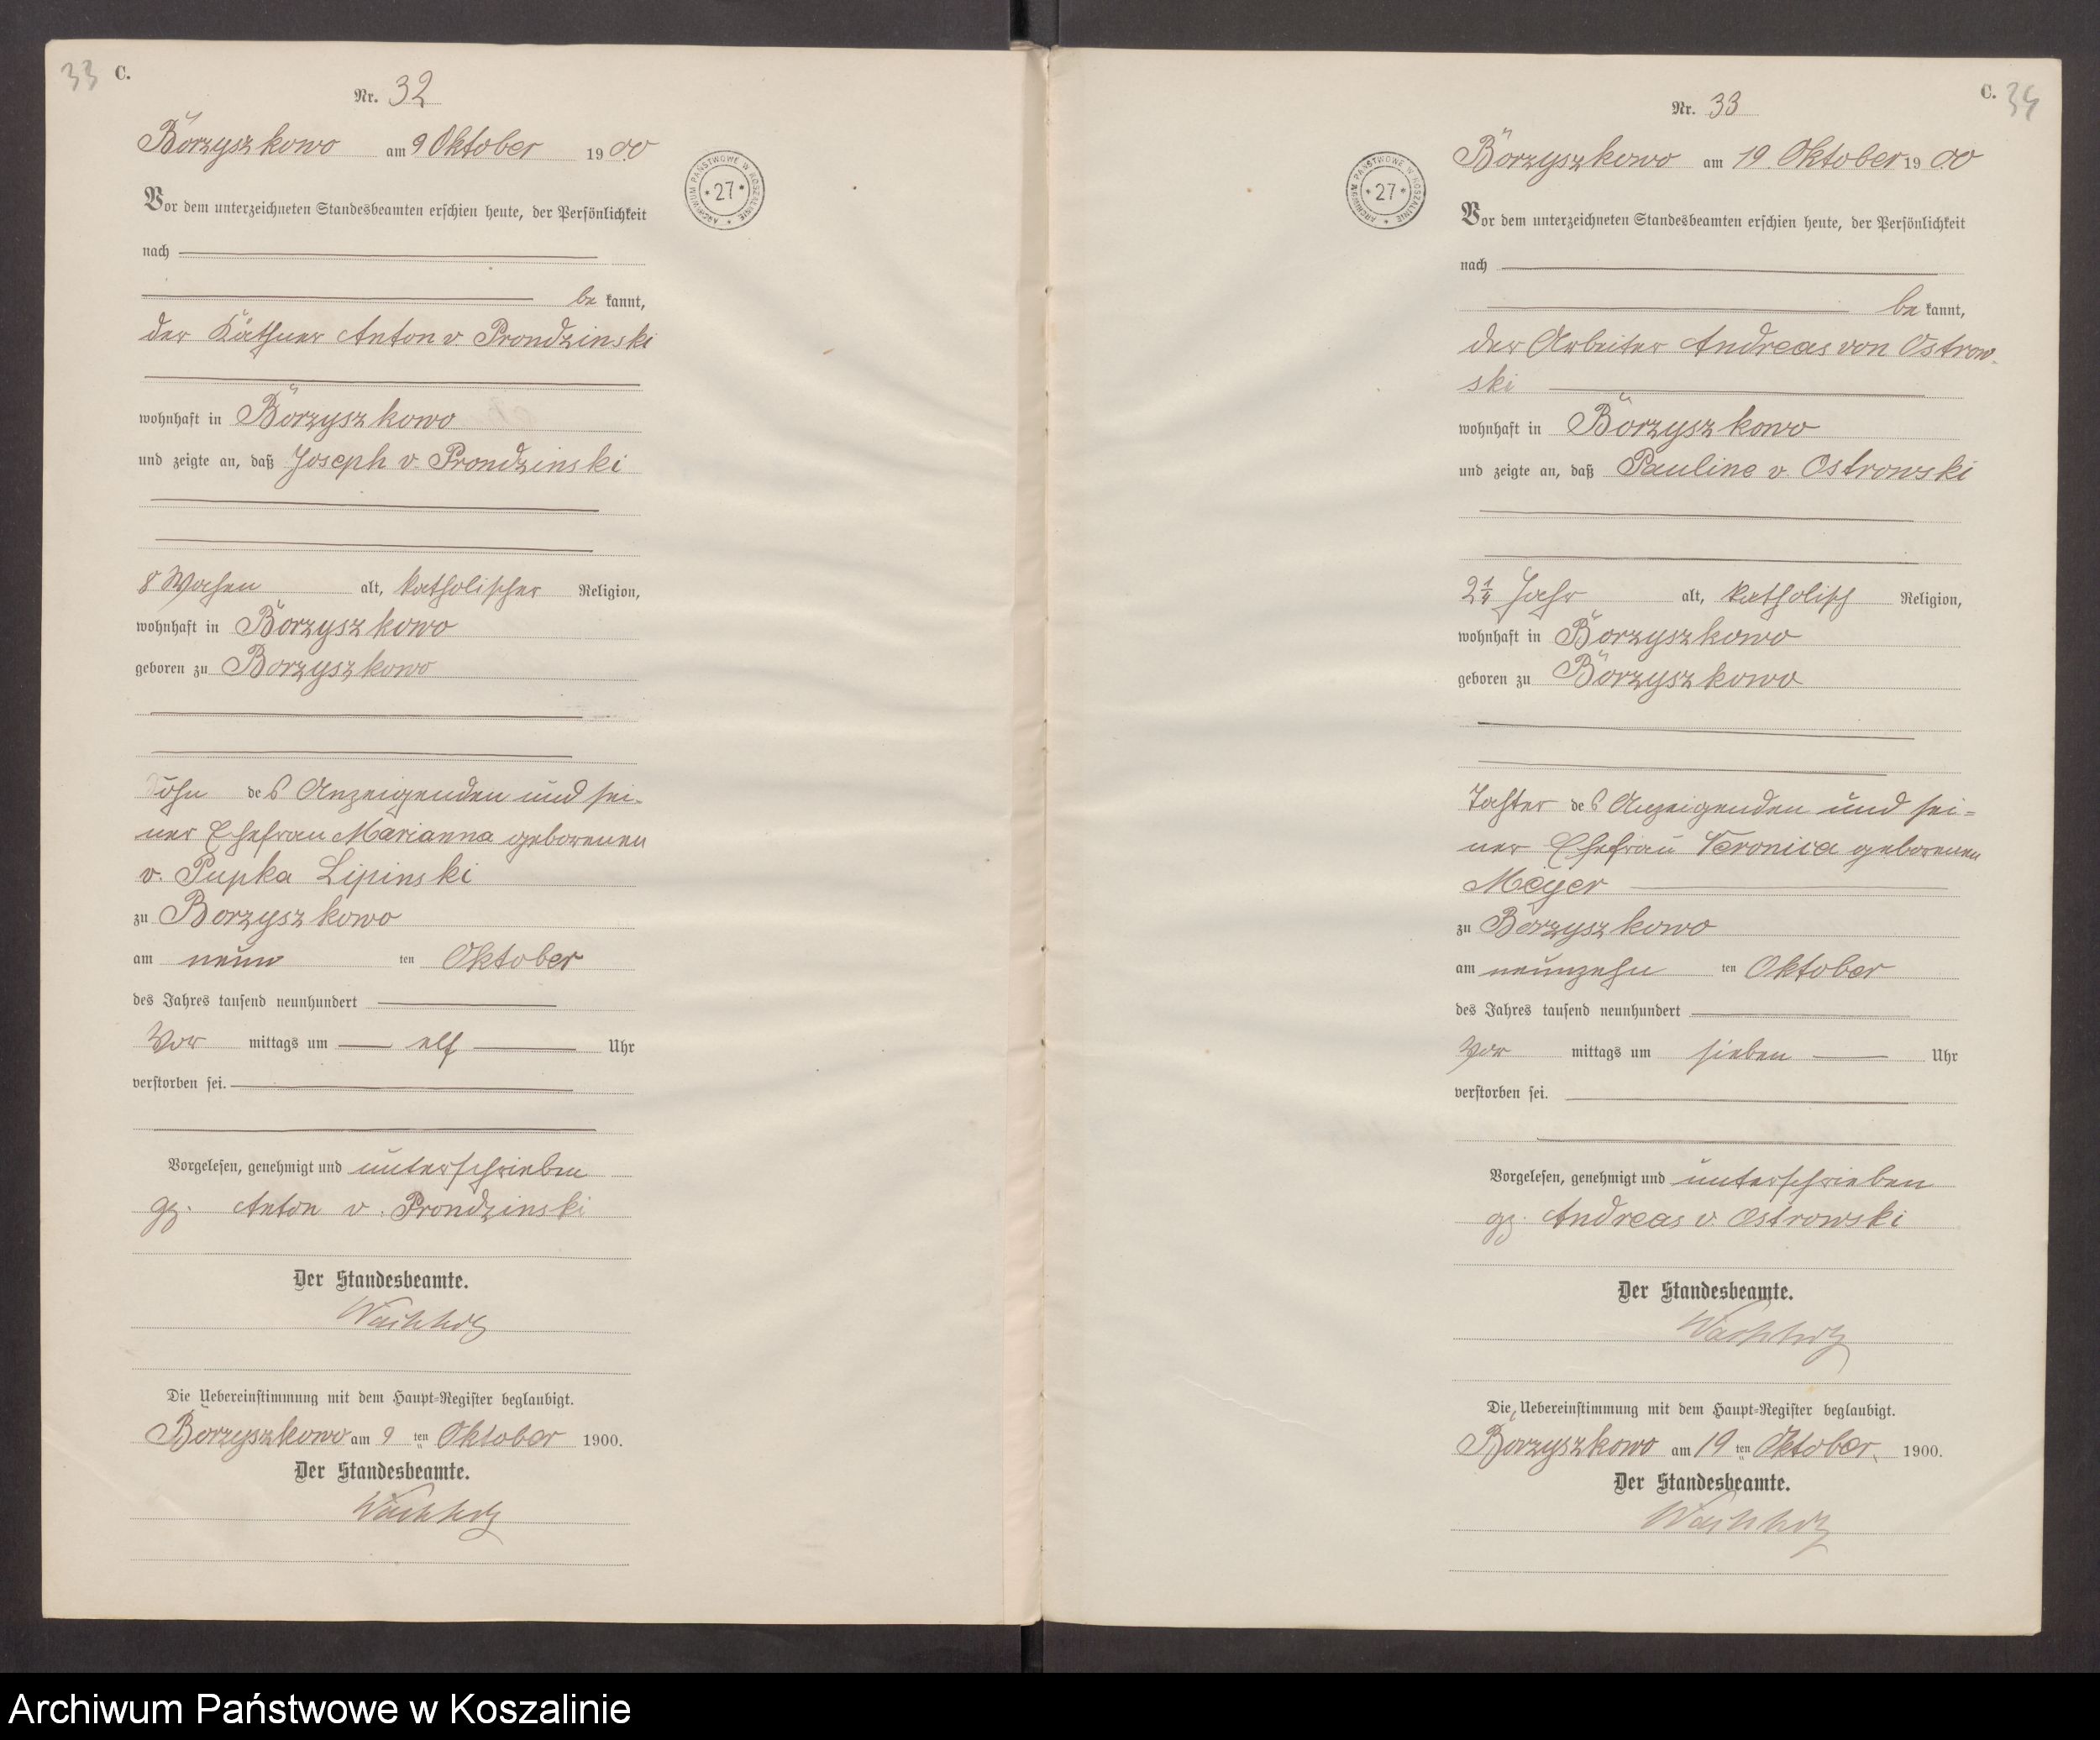 33 C.
Nr. 32
Borzyszkowo am 9 Oktober 1900
Vor dem unterzeichneten Standesbeamten erschien heute, der Persönlichkeit
nach
be kannt,
der Käthner Anton v. Prondzinski
wohnhaft in Borzyszkowo
und zeigte an, daß Joseph v. Prondzinski
8 Wochen alt, katholischer Religion,
wohnhaft in Borzyszkowo
geboren zu Borzyszkowo
Sohn des Anzeigenden und sei-
ner Ehefrau Marianna geborenen
v. Pupka Lipinski
zu Borzyszkowo
am neun ten Oktober
des Jahres tausend neunhundert
Vor mittags um elf Uhr
verstorben sei.
Vorgelesen, genehmigt und unterschrieben
gz. Anton v. Prondzinski
Der Standesbeamte.
Die Uebereinstimmung mit dem Haupt-Register beglaubigt.
Borzyszkowo am 9 ten Oktober 1900.
Der Standesbeamte.
ARCHIWUM PAŃSTWOWE W KOSZALINIE
* 27 *
C. 34
Nr. 33
Borzyszkowo am 19. Oktober 1900
Vor dem unterzeichneten Standesbeamten erschien heute, der Persönlichkeit
nach
be kannt,
der Arbeiter Andreas von Ostrow-
ski
wohnhaft in Borzyszkowo
und zeigte an, daß Pauline v. Ostrowski
2 1/4 Jahr alt, katholisch Religion,
wohnhaft in Borzyszkowo
geboren zu Borzyszkowo
Tochter des Anzeigenden und sei=
ner Ehefrau Veronica geborenen
Meyer
zu Borzyszkowo
am neunzehn ten Oktober
des Jahres tausend neunhundert
Vor mittags um sieben Uhr
verstorben sei.
Vorgelesen, genehmigt und unterschrieben
gz. Andreas v. Ostrowski
Der Standesbeamte.
Die Uebereinstimmung mit dem Haupt-Register beglaubigt.
Borzyszkowo am 19 ten Oktober 1900.
Der Standesbeamte.
ARCHIWUM PAŃSTWOWE W KOSZALINIE
* 27 *
Archiwum Państwowe w Koszalinie